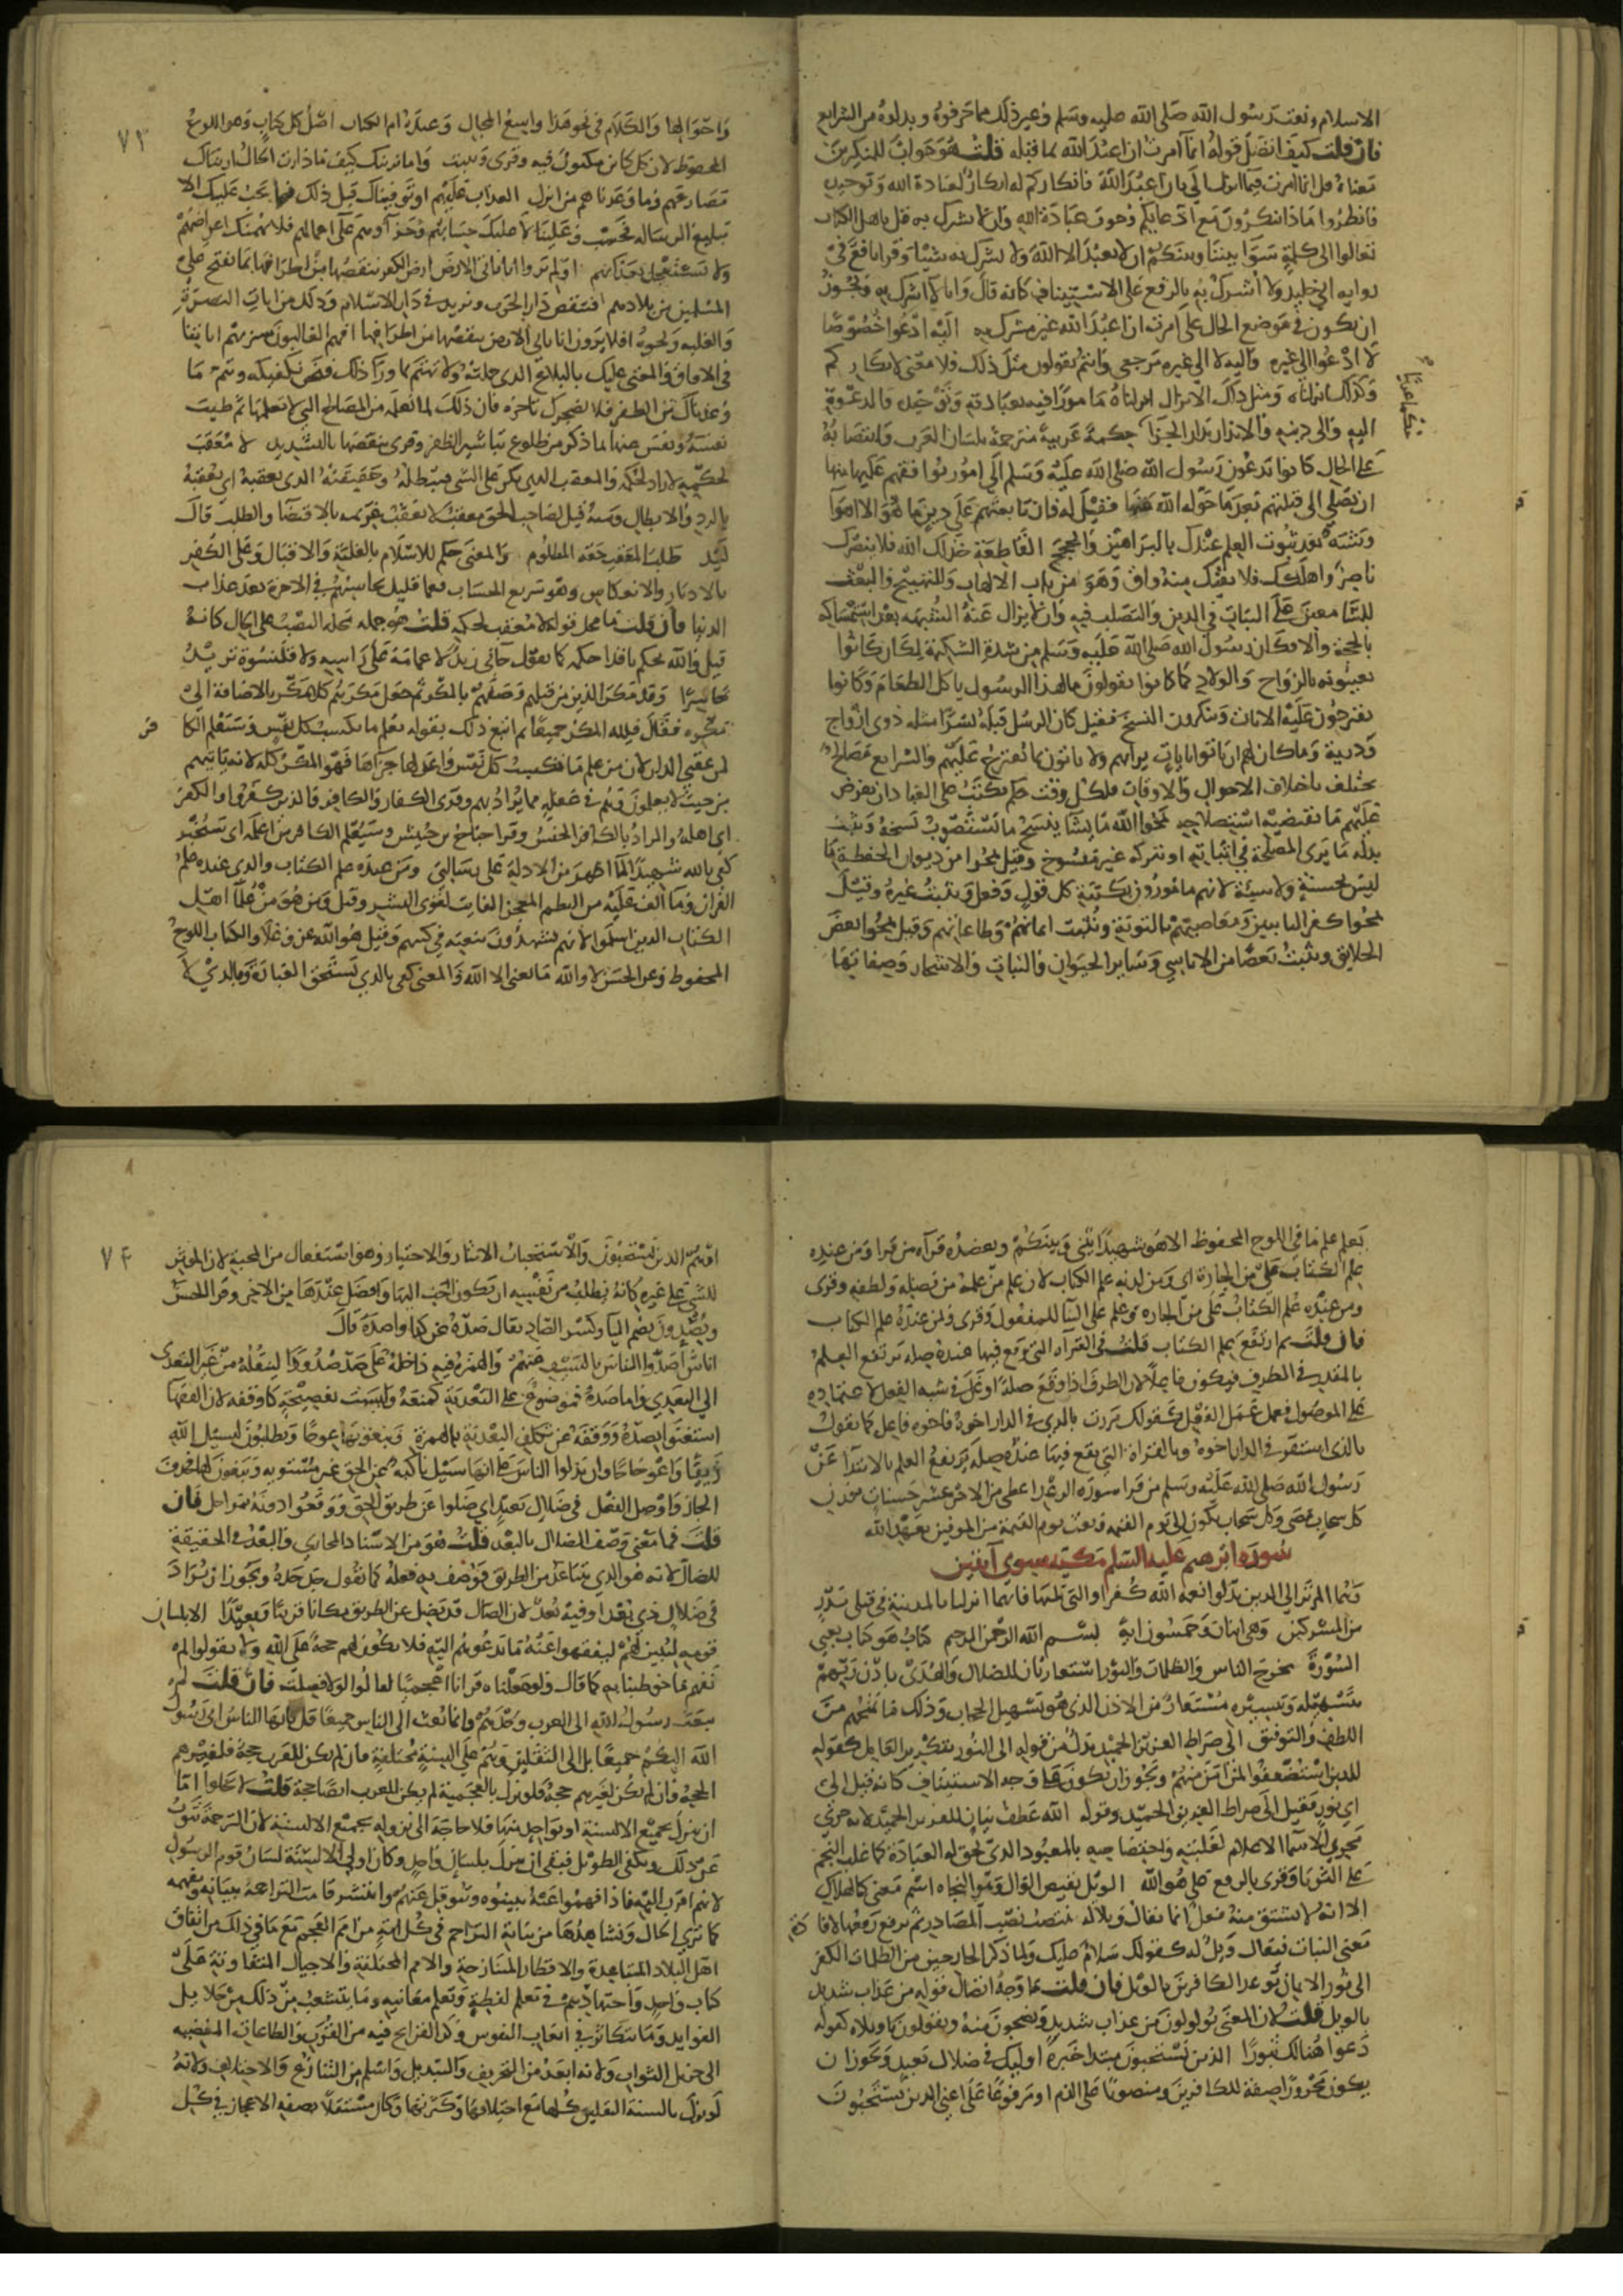 الاسلام ونعت رسول الله صلى الله عليه وسلم وغير ذلك مما حرفوه وبدلوه من الشرايع
فان قلت كيف اتصل قوله انما امرت ان اعبد الله بما قبله قلت هو جواب للمنكرين
معناه قل انما امرت فيما انزل الي بان اعبد الله فانكاركم له انكار لعبادة الله وتوحيده
فانظروا ماذا تنكرون مع ادعايكم وجوب عبادة الله وان لا يشرك به قل ياهل الكتاب
تعالوا الى كلمة سوا بيننا وبينكم ان لا نعبد الا الله ولا نشرك به شيا وقرا نافع في
رواية ابي خليد ولا اشرك به بالرفع على الاستيناف كانه قال وانا لا اشرك به ويجوز
ان يكون في موضع الحال على امرت ان اعبد الله غير مشرك به اليه ادعوا خصوصا
لا ادعوا الى غيره واليه لا الى غيره مرجعي وانتم تقولون مثل ذلك فلا معنى لانكاركم
وكذلك انزلناه ومثل ذلك الانزال انزلناه مامورا فيه بعبادته وتوحيده والدعوة
اليه والى دينه والانذار بدار الجزا حكمة عربية مترجمة بلسان العرب وانتصابه
على الحال كانوا يدعون رسول الله صلى الله عليه وسلم الى امور يوافقهم عليها منها
ان يصلي الى قبلتهم بعد ما حوله الله عنها فقيل له فان تابعتهم على دين ما هو الا اهوا
وشبه بعد ثبوت العلم عندك بالبراهين والحجج القاطعة خذلك الله فلا ينصرك
ناصر واهلكك فلا يقيك منه واق وهو من باب الالهاب والتهييج والبعث
للسامعين على الثبات في الدين والتصلب فيه وان لا يزال عنه الشبهه بعد استمساكه
بالحجة والا فكان رسول الله صلى الله عليه وسلم من شدة الشكيمة بمكان كانوا
يعيبونه بالزواج والولاد كما كانوا يقولون مال هذا الرسول ياكل الطعام وكانوا
يقترحون عليه الايات وينكرون النسخ فقيل كان الرسل قبله بشرا مثله ذوي ازواج
وذرية وما كان لهم ان ياتوا بايات برايهم ولا ياتون بما يقترح عليهم والشرايع مصالح
تختلف باختلاف الاحوال والاوقات فلكل وقت حكم يكتب على العباد ان يفرض
عليهم ما يقتضيه استصلاحهم يمحوا الله ما يشا ينسخ ما يستصوب نسخه ويثبت
بدله ما يرى المصلحة في اثباته او يتركه غير منسوخ وقيل يمحوا من ديوان الحفظة ما
ليس بحسنة ولا سيئة لانهم مامورون بكتبة كل قول وفعل ويثبت غيره وقيل
يمحوا كفر التايبين ومعاصيهم بالتوبة ويثبت ايمانهم وطاعاتهم وقيل يمحوا بعض
الخلايق ويثبت بعضا من الاناسي وساير الحيوان والنبات والاشجار وصفاتها
٧٣
واحوالها والكلام في نحو هذا واسع المجال وعنده ام الكتاب اصل كل كتاب وهو اللوح
المحفوظ لان كل كاين مكتوب فيه وقرى ويثبت واما نرينك كيف ما دارت الحال اريناك
مصارعهم وما وعدناهم من انزال العذاب عليهم او توفيناك قبل ذلك فما يجب عليك الا
تبليغ الرسالة فحسب وعلينا لا عليك حسابهم وجزآوهم على اعمالهم فلا يهمنك اعراضهم
ولا تستعجل بعذابهم اولم يروا انا ناتي الارض ارض الكفر ننقصها من اطرافها بما نفتح على
المسلمين من بلادهم فننقص دار الحرب ونزيد في دار الاسلام وذلك من ايات النصرة
والغلبه ونحوه افلا يرون انا ناتي الارض ننقصها من اطرافها افهم الغالبون سنريهم اياتنا
في الافاق والمعنى عليك بالبلاغ الذي حملته ولا تهتم بما ورآ ذلك فنحن نكفيكه ونتم ما
وعدناك من الظفر فلا يضجرك تاخره فان ذلك لما نعلم من المصالح التي لا تعلمها ثم طيب
نفسه ونفس عنها بما ذكر من طلوع تباشير الظفر وقرى ننقصها بالتشديد لا معقب
لحكمه لا راد لحكمه والمعقب الذي يكر على الشي فيبطله وحقيقته الذي يعقبه اي يقفيه
بالرد والابطال ومنه قيل لصاحب الحق معقب لانه يعقب غريمه بالاقتضا والطلب قال
لبيد طلب المعقب حقه المظلوم والمعنى حكم للاسلام بالغلبة والاقبال وعلى الكفر
بالادبار والانعكاس وهو سريع الحساب فعما قليل يحاسبهم في الاخرة بعد عذاب
الدنيا فان قلت ما محل قوله لا معقب لحكمه قلت هو جمله محلها النصب على الحال كانه
قيل والله يحكم نافذا حكمه كما تقول جاني زيد لا عمامة على راسه ولا قلنسوة تريد
حاسرا وقد مكر الذين من قبلهم وصفهم بالمكر ثم جعل مكرهم كلا مكر بالاضافة الى
مكره فقال فلله المكر جميعا ثم اتبع ذلك بقوله يعلم ما تكسب كل نفس وسيعلم الكا
فر
لمن عقبى الدار لان من علم ما تكسب كل نفس واعد لها جزاها فهو المكر كله لانه ياتيهم
من حيث لا يعلمون وهم في غفلة مما يراد بهم وقرى الكفار والكافر والذين كفروا والكفر
اي اهله والمراد بالكافر الجنس وقرا جناح بن حبيش وسيعلم الكافر من اعلمه اي سيخبر
كفى بالله شهيدا لما اظهر من الادلة على رسالتي ومن عنده علم الكتاب والذي عنده علم
القران وما الف عليه من النظم المعجز الفايت لقوى البشر وقيل ومن هو من علما اهل
الكتاب الذين اسلموا لانهم يشهدون بنعته في كتبهم وقيل هو الله عز وعلا والكتاب اللوح
المحفوظ وعن الحسن لا والله ما يعني الا الله والمعنى كفى بالذي يستحق العبادة وبالذي لا
يعلم علم ما في اللوح المحفوظ الا هو شهيدا بيني وبينكم وبعضده قرآه من قرا ومن عنده
علم الكتاب على من الجارة اي ومن لدنه علم الكتاب لان علم من علمه من فضله ولطفه وقرى
ومن عنده علم الكتاب على من الجاره وعلم على البنا للمفعول وقرى وبمن عنده علم الكتاب
فان قلت بم ارتفع علم الكتاب قلت في القرآه التي وقع فيها عنده صلة يرتفع العلم
بالمقدر في الظرف فيكون فاعلا لان الظرف اذا وقع صلة اوغل في شبه الفعل لاعتماده
على الموصول فعمل عمل الفعل كقولك مررت بالذي في الدار اخوه فاخوه فاعل كما تقول
بالذي استقر في الدار اخوه وبالقراة التي يقع فيها عنده صلة يرتفع العلم بالابتدا عن
رسول الله صلى الله عليه وسلم من قرا سورة الرعد اعطي من الاجر عشر حسنات بوزن
كل سحاب مضى وكل سحاب يكون الى يوم القيمة وبعث يوم القيمة من الموفين بعهد الله
سورة ابرهيم عليه السلم مكية سوى آيتين
وهما الم تر الى الذين بدلوا نعمه الله كفرا والتي تليها فانهما انزلتا بالمدينة في قتلى بدر
من المشركين وهي اثنان وخمسون اية بسم الله الرحمن الرحيم كتاب هو كتاب يعني
السورة تخرج الناس والظلمات والنور استعارتان للضلال والهدى باذن ربهم
بتسهيله وتيسيره مستعار من الاذن الذي هو تسهيل الحجاب وذلك ما يمنحهم من
اللطف والتوفيق الى صراط العزيز الحميد بدل من قوله الى النور بتكرير العامل كقوله
للذين استضعفوا لمن آمن منهم ويجوز ان يكون على وجه الاستيناف كانه قيل الى
اي نور فقيل الى صراط العزيز الحميد وقوله الله عطف بيان للعزيز الحميد لانه جرى
مجرى الاسما الاعلام لغلبته واختصاصه بالمعبود الذي تحق له العبادة كما غلب النجم
على الثريا وقرى بالرفع على هو الله الويل نقيض الوال وهو النجاه اسم معنى كالهلاك
الا انه لا يشتق منه فعل انما يقال ويلا له فينصب نصب المصادر ثم يرفع رفعها لافا
دة
معنى الثبات فيقال ويل له كقولك سلام عليك ولما ذكر الخارجين من الظلمات الكفر
الى نور الايمان توعد الكافرين بالويل فان قلت ما وجه اتصال قوله من عذاب شديد
بالويل قلت لان المعنى يولولون من عذاب شديد ويضجون منه ويقولون يا ويلاه كقوله
دعوا هنالك ثبورا الذين يستحبون مبتدا خبره اوليك في ضلال بعيد ويجوز ان
يكون مجرورا صفة للكافرين ومنصوبا على الذم او مرفوعا على اعني الذين يستحبون
٧٤
او هم الذين يستحبون والاستحباب الايثار والاختيار وهو استفعال من المحبة لان الموثر
للشي على غيره كانه يطلب من نفسه ان يكون احب اليها وافضل عندها من الاخر وقرا الحسن
ويصدون بضم اليا وكسر الصاد يقال صده عن كذا واصده قال
اناس اصدوا الناس بالسيف عنهم والهمزة فيه داخلة على صد صدودا لتنقله من غير التعدي
الى التعدي واما صده فموضوع على التعدية كمنعه وليست بفصيحة كاوقفه لان الفصحا
استغنوا بصده ووقفه عن تكلف التعدية بالهمزة ويبغونها عوجا ويطلبون لسبيل الله
زيغا واعوجاجا وان يدلوا الناس على انها سبيل ناكبة عن الحق غير مستويه ويبغون لها فحذف
الجار واوصل الفعل في ضلال بعيد اي ضلوا عن طريق الحق ووقعوا دونه بمراحل فان
قلت فما معنى وصف الضلال بالبعد قلت هو من الاسناد المجازي والبعد في الحقيقة
للضال لانه هو الذي يتباعد عن الطريق فوصف به فعله كما تقول جد جده ويجوز ان يراد
في ضلال ذي بعد او فيه بعد لان الضال قد يضل عن الطريق مكانا قريبا وبعيدا الا بلسان
قومه ليبين لهم ليفقهوا عنه ما يدعوهم اليه فلا يكون لهم حجة على الله ولا يقولوا لم
نفهم ما خوطبنا به كما قال ولو جعلناه قرانا اعجميا لقالوا لولا فصلت فان قلت لم
يبعث رسول الله الى العرب وحدهم وانما بعث الى الناس جميعا قل يايها الناس اني رسول
الله اليكم جميعا بل الى الثقلين وهم على السنة مختلفة فان لم يكن للعرب حجة فلغيرهم
الحجة وان لم يكن لغيرهم حجة فلو نزل بالعجمية لم يكن للعرب ايضا حجة قلت لا يخلوا اما
ان ينزل بجميع الالسنة او بواحد منها فلا حاجة الى نزوله بجميع الالسنة لان الترجمة تنوب
عن ذلك ويكفي التطويل فبقي ان ينزل بلسان واحد وكان اولى الالسنة لسان قوم الرسول
لانهم اقرب اليه فاذا فهموا عنه بينوه وتنوقل عنهم وانتشر قامت التراجم ببيانه وتفهمه
كما ترى الحال وتشاهدها من نيابة التراجم في كل امة من امم العجم مع ما في ذلك من اتفاق
اهل البلاد المتباعدة والاقطار المتنازحة والامم المختلفة والاجيال المتفاوتة على
كتاب واحد واجتهادهم في تعلم لفظه وتعلم معانيه وما يتشعب من ذلك من جلايل
الفوايد وما يتكاثر في اتعاب النفوس وكد القرايح فيه من القرب والطاعات المفضيه
الى جزيل الثواب ولانه ابعد من التحريف والتبديل واسلم من التنازع والاختلاف ولانه
لو نزل بالسنة الثقلين كلها مع اختلافها وكثرتها وكان مستقلا بصفة الاعجاز في كل